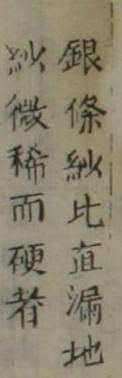 銀條紗比直漏地
紗微稀而硬者